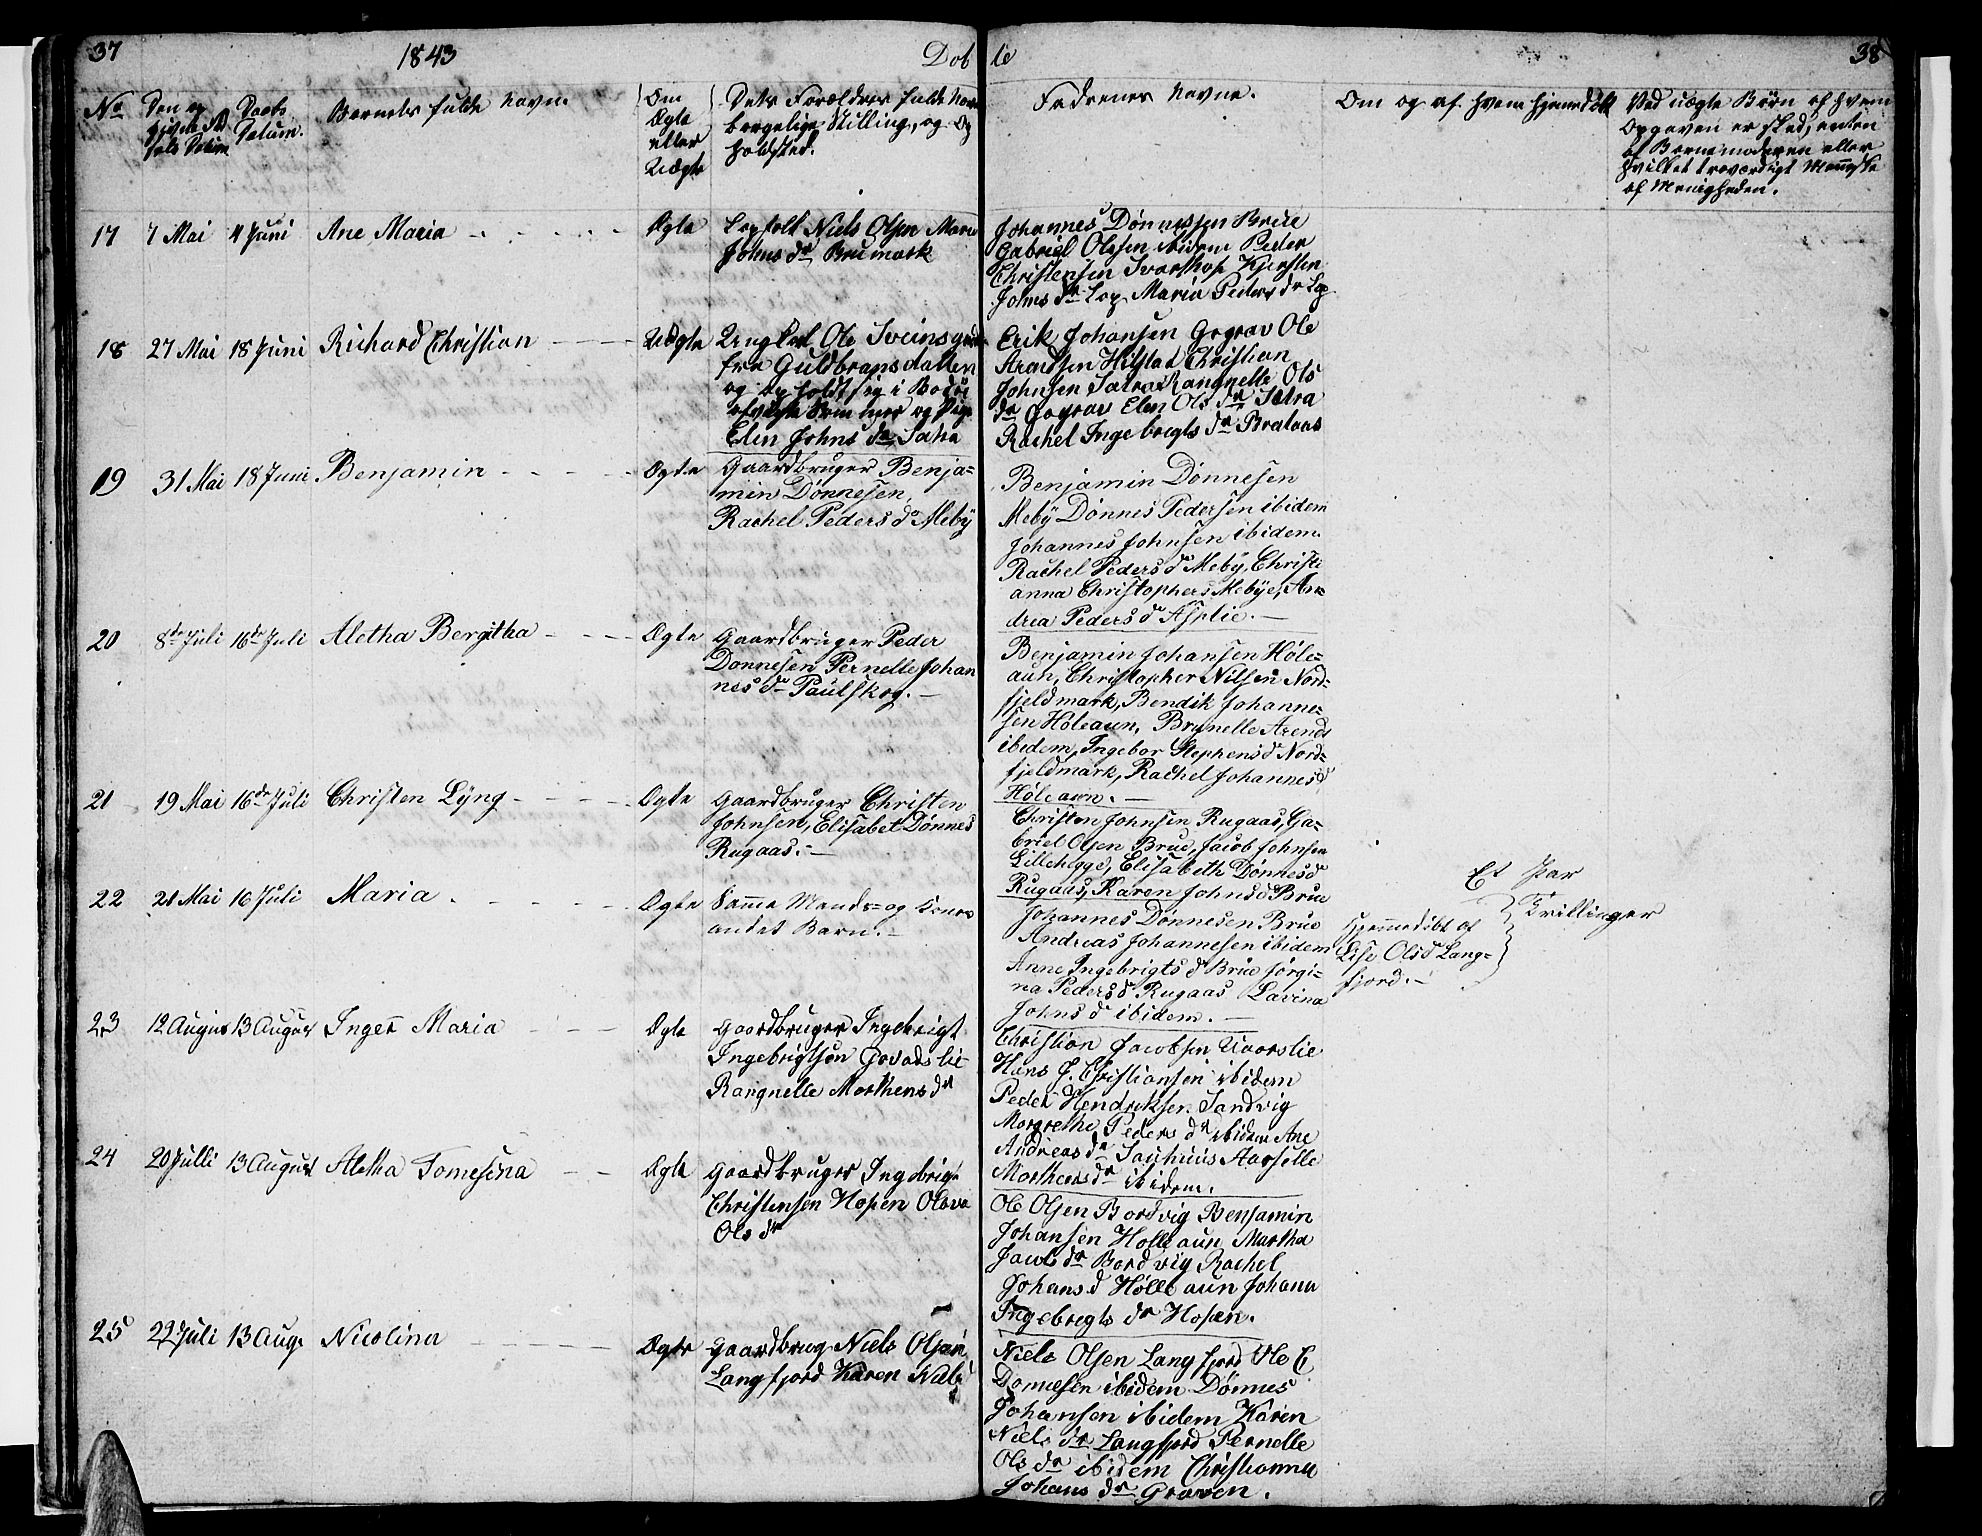 37 1843 Døb
te 38
No Den op givne Fød sels Datum Daabs Datum. Barnets fulde Navn. Om Ægte eller Uægte Dets Forældres fulde Navne borgelige Stilling, og Op holdsted.
Fadrenes Navne. Om og af hvem hjemedøbt Ved uægte Børn af hvem
Opgaven er sked, enten
af Barnemoderen eller
hvilket troværdigt Menneske
af Menigheden.
17 7 Mai 4 Juni Ane Maria Ægte Lapfolk Niels Olsen Maria
Johns dr Bruemark
Johannes Dønnessen Brue
Gabriel Olsen ibidem Peder
Christensen Svarthop Kjersten
Johns dr Lap Maria Peders dr Lap
18 27 Mai 18 Juni Richard Christian Uægte Ungkarl Ole Sveinsgard
fra Guldbransdallen
og opholdt sig i Bodø
og Pige
Elen Johns dr Sætra
Erik Johansen Gograv Ole
Arentsen Hilstad Christian
Johnsen Sætra Rangnelle Ols
dr Gograv Elen Ols dr Sætra
Rachel Ingebregts dr Brataas
19 31 Mai 18 Juni Benjamin Ægte Gaardbruger Benja-
min Dønnesen,
Rachel Peders dr Meby
Benjamin Dønnesen
Meby Dønnes Pedersen ibidem
Johannes Johnsen ibidem.
Rachel Peders dr Meby, Christi
anna Christophers Mebye, An-
drea Peders dr Asplie.
20 8de Juli 16de Juli Aletha Bergitha Ægte Gaardbruger Peder
Dønnesen Pernelle Johan
nes dr Paulskog.
Benjamin Johansen Høle-
aun, Christopher Nilsen Nord-
fjeldmark, Bendik Johanne-
sen Høleaun, Brynelle Arends
ibidem, Ingebor Stephens d Nord-
fjeldmark, Rachel Johannes d
Høleaun.
21 19 Mai 16de Juli Christen Lÿng Ægte Gaardbruger Christen
Johnsen, Elisabet Dønnes
Rugaas.
Christen Johnsen Rugaas, Ga-
briel Olsen Brue, Jacob Johnsen
Lillehegge, Elisabeth Dønnes d
Rugaas, Karen Johns d Brue
22 21 Mai 16 Juli Maria Ægte Samme Mands- og Kones
andet Barn.
Johannes Dønnesen Brue
Andreas Johannesen ibidem
Anne Ingebrigts d Brue Jørgi-
na Peders d Rugaas Lavina
Johns d ibidem.
Hjemmedøbt af
Lise Ols d Lang-
fjord.
Et Par
Tvillinger
23 12 August 13 August Inger Maria Ægte Gaardbruger Ingebrigt
Ingebrigtsen Govadslie
Rangnelle Morthens dr
Christian Jacobsen Kaarslie
Hans J. Christiansen ibidem
Peder Hendriksen Sandvig
Morgrethe Peders dr ibidem Ane
Andreas dr Sauhuus Aaselle
Morthens dr ibidem.
24 20 Julli 13 August Aletha Tomesina Ægte Gaardbruger Ingebrigt
Christensen Hopen Olava
Ols dr
Ole Olsen Bordvig Benjamin
Johansen Holleaun Martha
Jacobs dr Bordvig Rachel
Johans d Hølleaun Johanna
Ingebregts dr Hopen.
25 22 Juli 13 Aug. Nicolina Ægte Gaardbrug Niels Olsen
Langfjord Karen Niels
Niels Olsen Langfjord Ole C
Dønnesen ibidem Dønnes
Johansen ibidem Karen
Niels dr Langfjord Pernelle
Ols dr ibidem Christianna
Johans dr Graven.